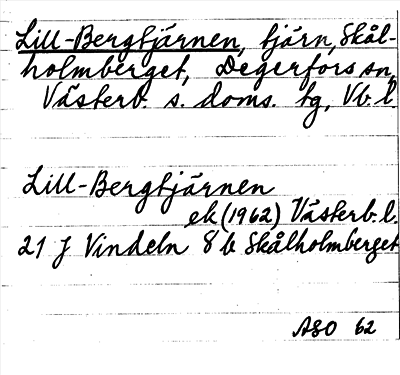 Lill-Bergtjärnen, tjärn, Skål-
holmberget, Degerfors sn,
Västerb. s. doms. tg, Vb. l.
Lill-Bergtjärnen
ek (1962) Västerb. l.
21 J Vindeln 8 b Skålholmberget
ASO 62